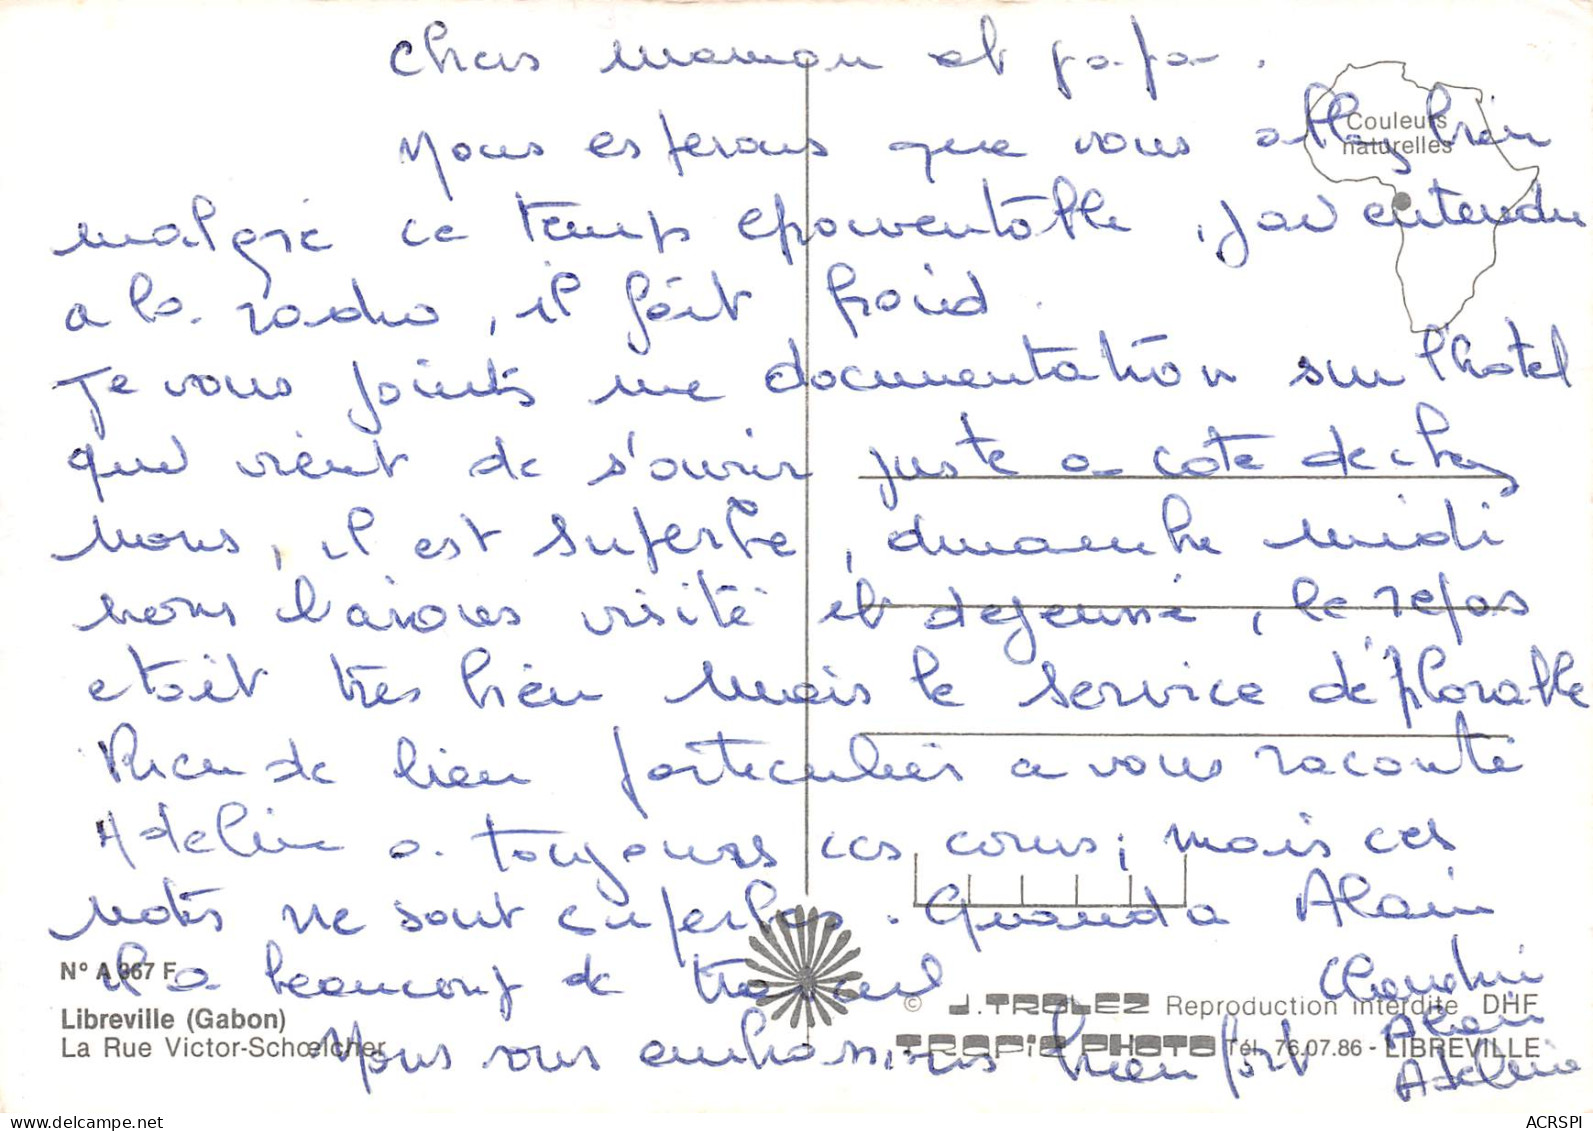 Chers maman et papa.
Couleurs
naturelles
Nous esperons que vous allez bien
malgré ce temps epouventable, j'ai entendu
a la radio, il fait froid.
Je vous joints une documentation sur l'hotel
qui vient de s'ouvrir juste a coté de chez
nous, il est superbe, dimanche midi
nous l'avons visité et dejeuné, le repas
etait très bien mais le service déplorable
Rien de bien particulier a vous raconté
Adeline a toujours ces cours, mais ces
notes ne sont superbes. Quand a Alain
il a beaucoup de travail
Nous vous embrassons bien fort
Claudie
Alain
Adeline
N° A 367 F
Libreville (Gabon)
La Rue Victor-Schœlcher
© J. TROLEZ Reproduction interdite DHF
TROPIC PHOTO Tél. 76.07.86 - LIBREVILLE
ACRSPI